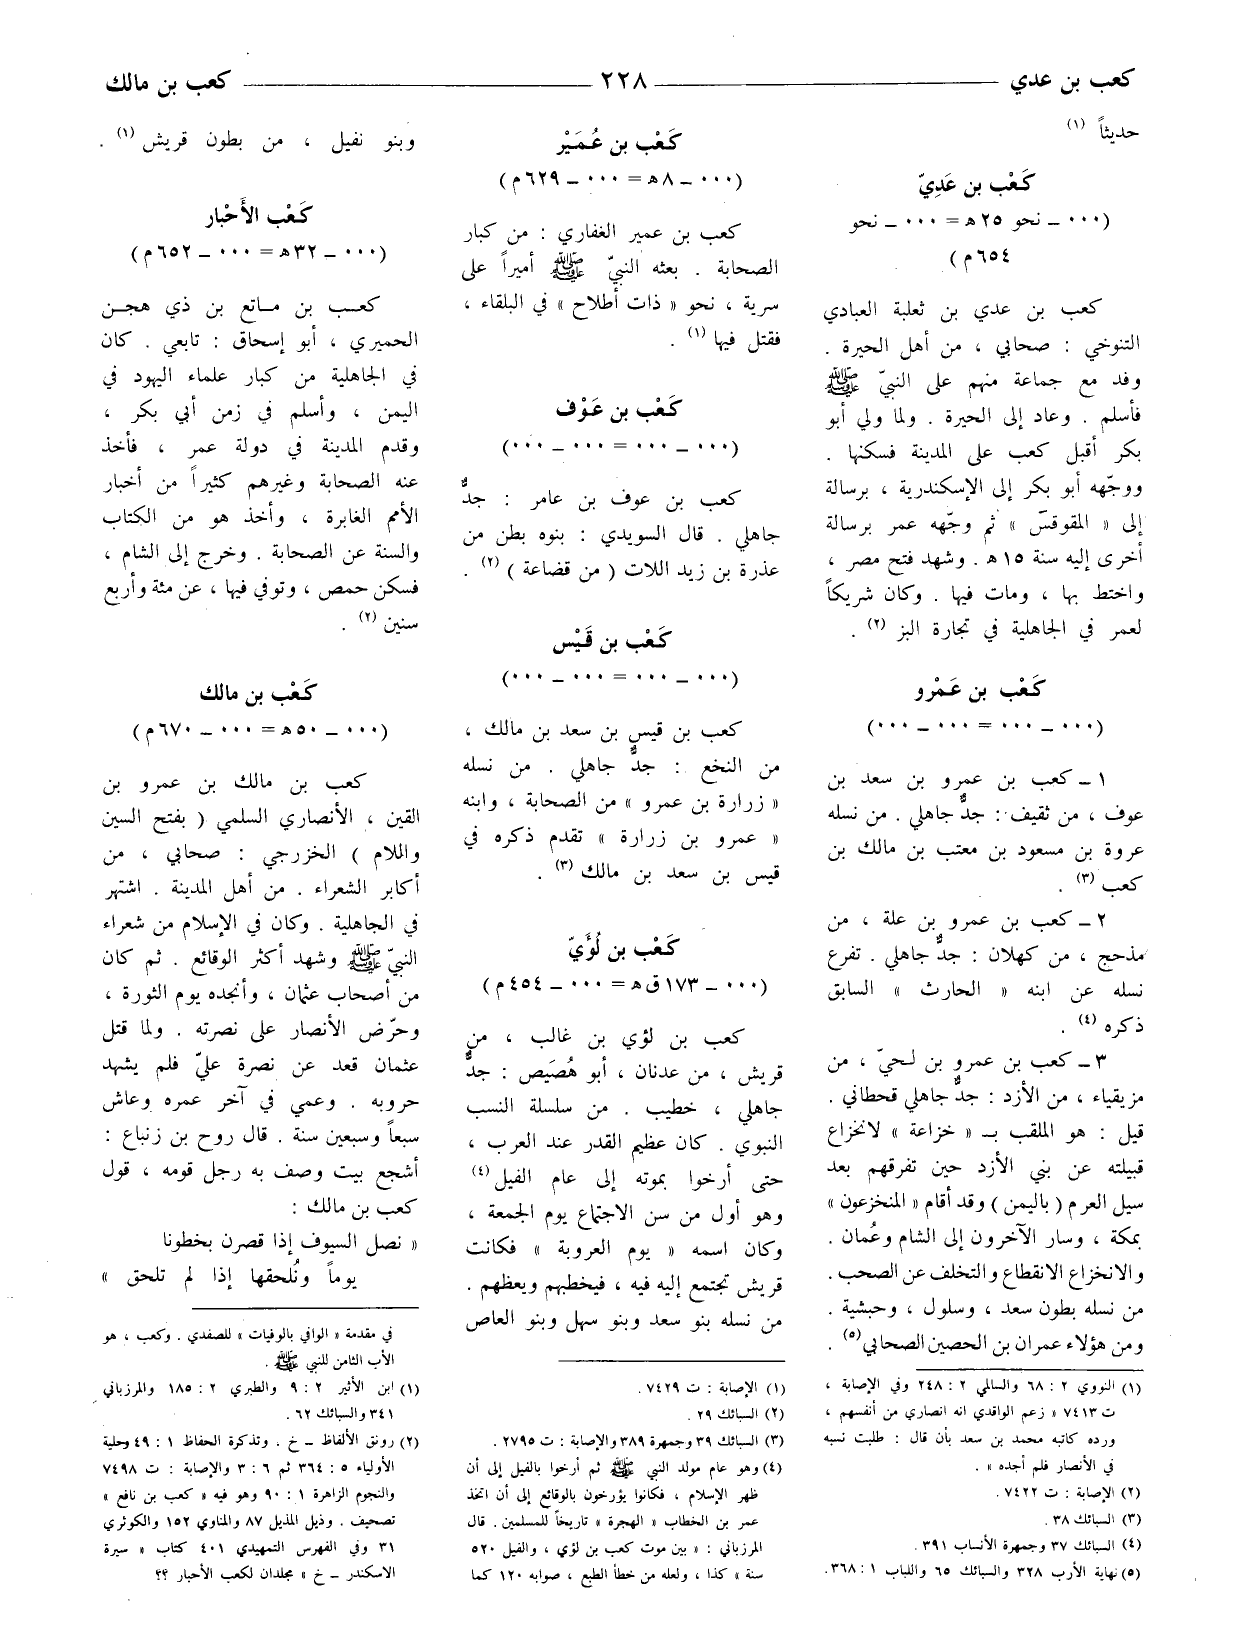 كعب بن عدي ٢٢٨ كعب بن مالك
حديثاً (١)
كَعْب بن عَدِيّ
(٠٠٠ ــ نحو ٢٥ ه = ٠٠٠ ــ نحو
٦٥٤ م)
كعب بن عدي بن ثعلبة العبادي
التنوخي : صحابي ، من أهل الحيرة .
وفد مع جماعة منهم على النبيّ ﷺ
فأسلم . وعاد إلى الحيرة . ولما ولي أبو
بكر أقبل كعب على المدينة فسكنها .
ووجّهه أبو بكر إلى الإسكندرية ، برسالة
إلى « المقوقس » ثم وجّهه عمر برسالة
أخرى إليه سنة ١٥ ه . وشهد فتح مصر ،
واختط بها ، ومات فيها . وكان شريكاً
لعمر في الجاهلية في تجارة البز (٢) .
كَعْب بن عَمْرو
(٠٠٠ ــ ٠٠٠ = ٠٠٠ ــ ٠٠٠)
١ ــ كعب بن عمرو بن سعد بن
عوف ، من ثقيف : جدٌّ جاهلي . من نسله
عروة بن مسعود بن معتب بن مالك بن
كعب (٣) .
٢ ــ كعب بن عمرو بن علة ، من
مذحج ، من كهلان : جدٌّ جاهلي . تفرع
نسله عن ابنه « الحارث » السابق
ذكره (٤) .
٣ ــ كعب بن عمرو بن لحيّ ، من
مزيقياء ، من الأزد : جدٌّ جاهلي قحطاني .
قيل : هو الملقب بـ « خزاعة » لانخزاع
قبيلته عن بني الأزد حين تفرقهم بعد
سيل العرم ( باليمن ) وقد أقام « المنخزعون »
بمكة ، وسار الآخرون إلى الشام وعُمان .
والانخزاع الانقطاع والتخلف عن الصحب .
من نسله بطون سعد ، وسلول ، وحبشية .
ومن هؤلاء عمران بن الحصين الصحابي (٥) .
(١) النووي ٢ : ٦٨ والسالمي ٢ : ٢٤٨ وفي الإصابة ،
ت ٧٤١٣ « زعم الواقدي انه انصاري من أنفسهم ،
ورده كاتبه محمد بن سعد بأن قال : طلبت نسبه
في الأنصار فلم أجده » .
(٢) الإصابة : ت ٧٤٢٢ .
(٣) السبائك ٣٨ .
(٤) السبائك ٣٧ وجمهرة الأنساب ٣٩١ .
(٥) نهاية الأرب ٣٢٨ والسبائك ٦٥ واللباب ١ : ٣٦٨ .
كَعْب بن عُمَيْر
(٠٠٠ ــ ٨ ه = ٠٠٠ ــ ٦٢٩ م)
كعب بن عمير الغفاري : من كبار
الصحابة . بعثه النبيّ ﷺ أميراً على
سرية ، نحو « ذات أطلاح » في البلقاء ،
فقتل فيها (١) .
كَعْب بن عَوْف
(٠٠٠ ــ ٠٠٠ = ٠٠٠ ــ ٠٠٠)
كعب بن عوف بن عامر : جدٌّ
جاهلي . قال السويدي : بنوه بطن من
عذرة بن زيد اللات ( من قضاعة ) (٢) .
كَعْب بن قَيْس
(٠٠٠ ــ ٠٠٠ = ٠٠٠ ــ ٠٠٠)
كعب بن قيس بن سعد بن مالك ،
من النخع : جدٌّ جاهلي . من نسله
« زرارة بن عمرو » من الصحابة ، وابنه
« عمرو بن زرارة » تقدم ذكره في
قيس بن سعد بن مالك (٣) .
كَعْب بن لُؤَيّ
(٠٠٠ ــ ١٧٣ ق ه = ٠٠٠ ــ ٤٥٤ م)
كعب بن لؤي بن غالب ، من
قريش ، من عدنان ، أبو هُصَيص : جدٌّ
جاهلي ، خطيب . من سلسلة النسب
النبوي . كان عظيم القدر عند العرب ،
حتى أرخوا بموته إلى عام الفيل (٤)
وهو أول من سن الاجتماع يوم الجمعة ،
وكان اسمه « يوم العروبة » فكانت
قريش تجتمع إليه فيه ، فيخطبهم ويعظهم .
من نسله بنو سعد وبنو سهل وبنو العاص
(١) الإصابة : ت ٧٤٢٩ .
(٢) السبائك ٢٩ .
(٣) السبائك ٣٩ وجمهرة ٣٨٩ والإصابة : ت ٢٧٩٥ .
(٤) وهو عام مولد النبي ﷺ ثم أرخوا بالفيل إلى أن
ظهر الإسلام ، فكانوا يؤرخون بالوقائع إلى أن اتخذ
عمر بن الخطاب « الهجرة » تاريخاً للمسلمين . قال
المرزباني : « بين موت كعب بن لؤي ، والفيل ٥٢٠
سنة » كذا ، ولعله من خطأ الطبع ، صوابه ١٢٠ كما
وبنو نفيل ، من بطون قريش (١) .
كَعْب الأَحْبار
(٠٠٠ ــ ٣٢ ه = ٠٠٠ ــ ٦٥٢ م)
كعب بن ماتع بن ذي هجن
الحميري ، أبو إسحاق : تابعي . كان
في الجاهلية من كبار علماء اليهود في
اليمن ، وأسلم في زمن أبي بكر ،
وقدم المدينة في دولة عمر ، فأخذ
عنه الصحابة وغيرهم كثيراً من أخبار
الأمم الغابرة ، وأخذ هو من الكتاب
والسنة عن الصحابة . وخرج إلى الشام ،
فسكن حمص ، وتوفي فيها ، عن مئة وأربع
سنين (٢) .
كَعْب بن مالك
(٠٠٠ ــ ٥٠ ه = ٠٠٠ ــ ٦٧٠ م)
كعب بن مالك بن عمرو بن
القين ، الأنصاري السلمي ( بفتح السين
واللام ) الخزرجي : صحابي ، من
أكابر الشعراء . من أهل المدينة . اشتهر
في الجاهلية . وكان في الإسلام من شعراء
النبيّ ﷺ وشهد أكثر الوقائع . ثم كان
من أصحاب عثمان ، وأنجده يوم الثورة ،
وحرّض الأنصار على نصرته . ولما قتل
عثمان قعد عن نصرة عليّ فلم يشهد
حروبه . وعمي في آخر عمره وعاش
سبعاً وسبعين سنة . قال روح بن زنباع :
أشجع بيت وصف به رجل قومه ، قول
كعب بن مالك :
« نصل السيوف إذا قصرن بخطونا
يوماً ونُلحقها إذا لم تلحق »
في مقدمة « الوافي بالوفيات » للصفدي . وكعب ، هو
الأب الثامن للنبي ﷺ .
(١) ابن الأثير ٢ : ٩ والطبري ٢ : ١٨٥ والمرزباني
٣٤١ والسبائك ٦٢ .
(٢) رونق الألفاظ ــ خ . وتذكرة الحفاظ ١ : ٤٩ وحلية
الأولياء ٥ : ٣٦٤ ثم ٦ : ٣ والإصابة : ت ٧٤٩٨
والنجوم الزاهرة ١ : ٩٠ وهو فيه « كعب بن نافع »
تصحيف . وذيل المذيل ٨٧ والمناوي ١٥٢ والكوثري
٣١ وفي الفهرس التمهيدي ٤٠١ كتاب « سيرة
الاسكندر ــ خ » مجلدان لكعب الأحبار ؟؟